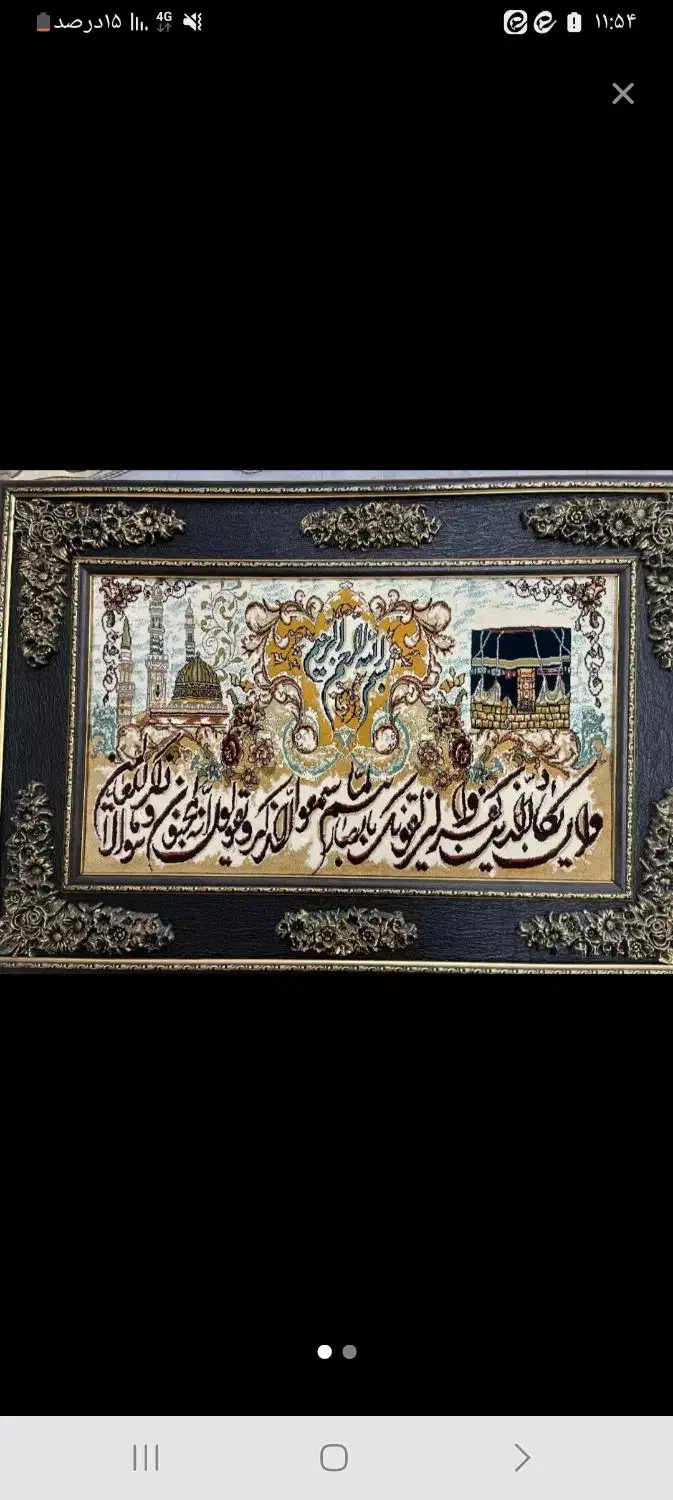 ۱۵درصد 4G ۱۱:۵۴
بسم الله الرحمن الرحیم
وان یکاد الذین کفروا لیزلقونک بابصارهم لما سمعوا الذکر ویقولون انه لمجنون وما هو الا ذکر للعالمین